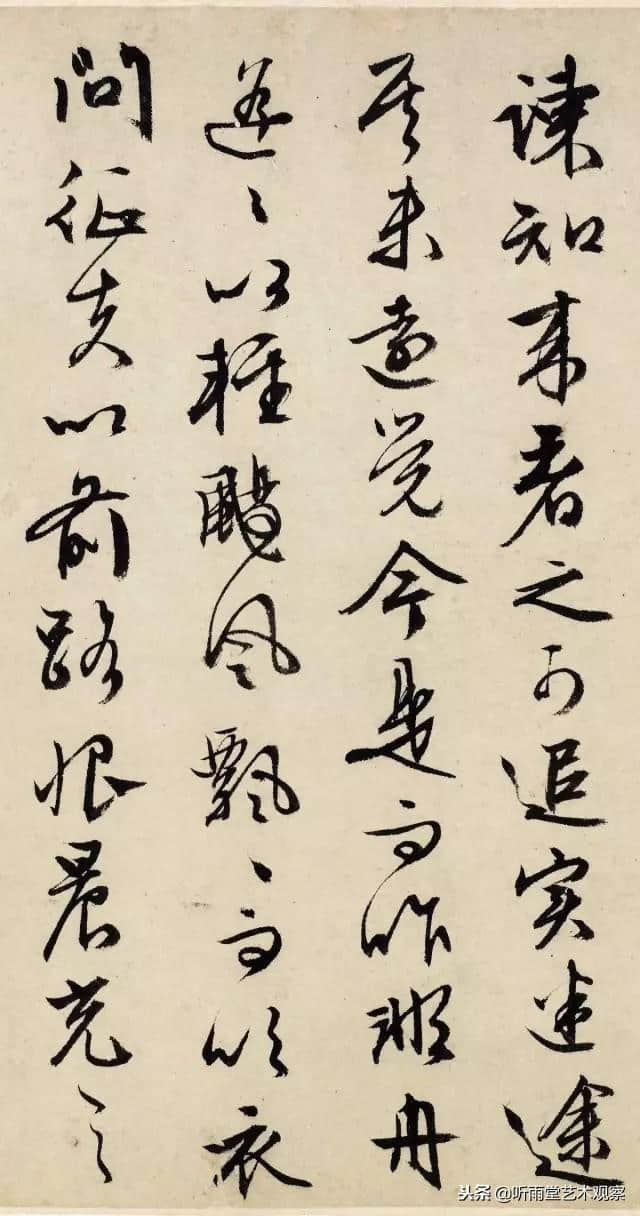 諫知来者之可追实迷途
其未遠覺今是而昨非舟
遥〻以輕颺風飄〻而吹衣
問征夫以前路恨晨光之
头条 @听雨堂艺术观察